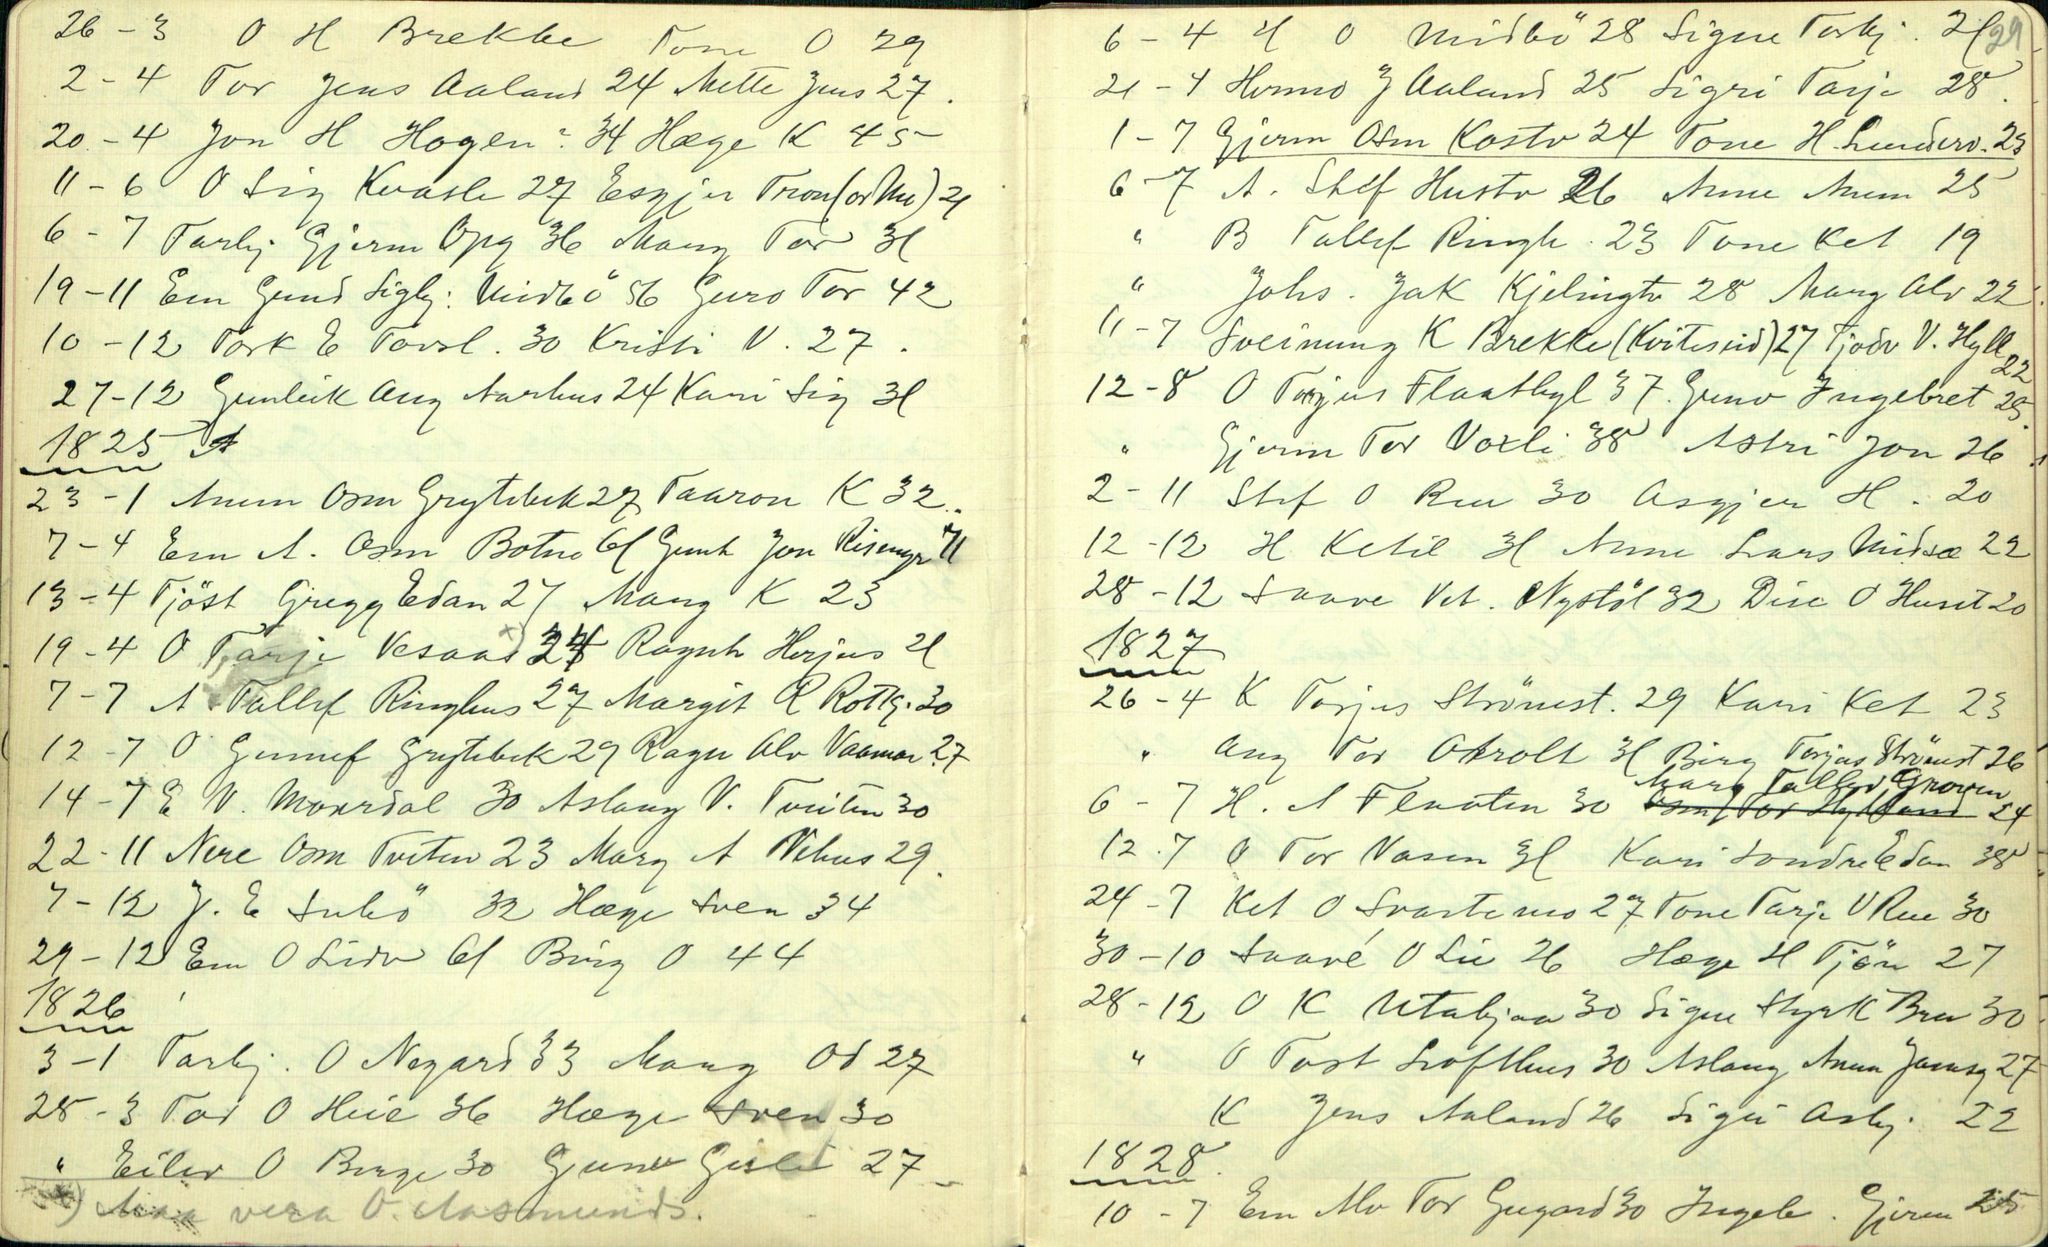 26 - 3 O H Brekke Tone O 29
2 - 4 Tor Jens Aaland 24 Mette Jens 27.
20 - 4 Jon H Hogen 34 Hæge K 45
11 - 6 O Sig Kvasle 27 Esgjer Tron 21
6 - 7 Tarbj Gjerm Opg 36 Marg Tor 31
19 - 11 Em Gund Sigbj: Midbö 56 Guro Tor 42
10 - 12 Tork E Tovsl. 30 Kristi V. 27.
27 - 12 Gunleik Aug Aarhus 24 Kari Sig 31
1825
23 - 1 Anun Osm Grytebek 27 Taaron K 32.
7 - 4 Em A. Osm Botne 61 Gunh Jon 71
13 - 4 Tjöst Gregg Edan 27 Marg K 23
19 - 4 O Tarje Vesaas x) 24 Ragnh Herjus 21
7 - 7 A Tallef Ringhus 27 Margit R Rottg. 30
12 - 7 O Gunnef Grytebek 29 Ragn Alv 27
14 - 7 E V. Moardal 30 Aslaug V. Tveiten 30
22 - 11 Nere Osm Tveten 23 Marg A Vehus 29.
7 - 12 J. E Subö 32 Hæge Sven 34
29 - 12 Em O Lidv 61 Birg O 44
1826
3 - 1 Tarbj. O Negard 33 Marg Od 27
28 - 3 Tor O Heie 36 Hæge Sven 30
" Eilev O Berge 30 Gunv 27
x) Maa vera O. Aasmunds.
6 - 4 H O Midbö 28 Signe Torbj. 21
29
21 - 4 J Aaland 25 Sigri Tarje 28.
1 - 7 Gjerm Osm Kostv 24 Tone H. Lunderv. 23
6 - 7 A. Stef Hustv 26 Anne Anun 25
" B Tallef Ringh. 23 Tone Ket 19
" Johs. Jak Kjelingtv 28 Marg Alv 22.
11 - 7 Sveinung K Brekke (Kviteseid) 27 Tjodv V. Hyll 22
12 - 8 O Torjus Flaatbyl 37. Gunv Ingebret 25.
" Gjerm Tor Voxli 38 Astri Jon 26
2 - 11 Stef O Rue 30 Asgjer H. 20
12 - 12 H Ketil 31 Anne Lars Midsæ 22
28 - 12 Saave Vet. Nystöl 32 Dise O Huset 20
1827
26 - 4 K Torjus Strömst. 29 Kari Ket 23
" Aug Tor 31 Birg Torjus Strömst 26
6 - 7 H. A Flaaten 30 Marg Tallev, Groven 24
12 . 7 O Tor Vasen 31 Kari Sondre Edan 38
24 - 7 Ket O Svartemo 27 Tone Tarje V Rue 30
30 - 10 Saave O Lie 26 Hæge H Tjön 27
28 - 12 O K Utabjaa 30 Signe Styrk Bru 30
" O Tost Lofthus 30 Aslaug Anun 27
K Jens Aaland 26 Sigri Asbj. 22
1828.
10 - 7 Em Alv Tor Gugard 30 Ingeb. Gjerm 25